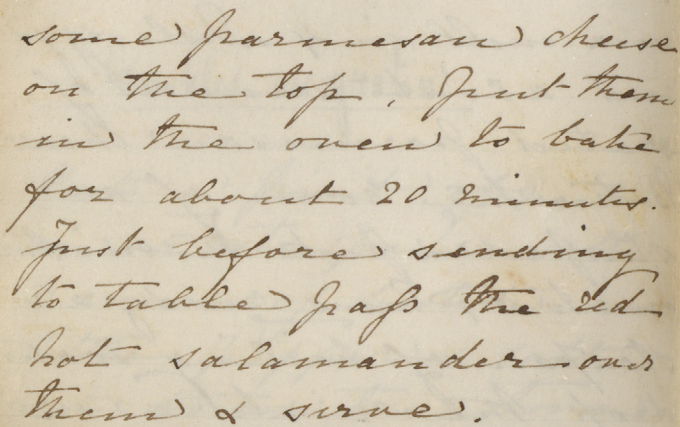 some parmesan cheese
on the top, put them
in the oven to bake
for about 20 minutes.
Just before sending
to table paſs the red
hot salamander over
them & serve.